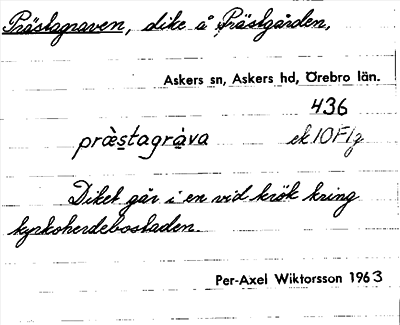 Prästagraven, dike å Prästgården,
Askers sn, Askers hd, Örebro län.
436
præ̀stagràva ek 10F1g
Diket går i en vid krök kring
kyrkoherdebostaden.
Per-Axel Wiktorsson 1963